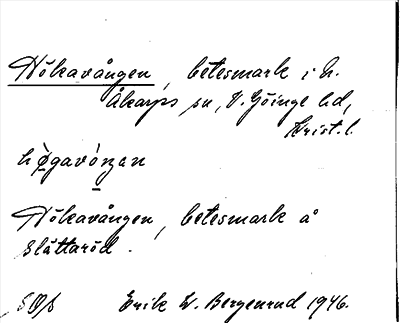 Hökavången, betesmark i N.
Åkarps sn, V. Göinge hd,
Krist. l.
hø̀gavóŋan
Hökavången, betesmark å
Slättaröd.
Erik W. Bergenrud 1946.